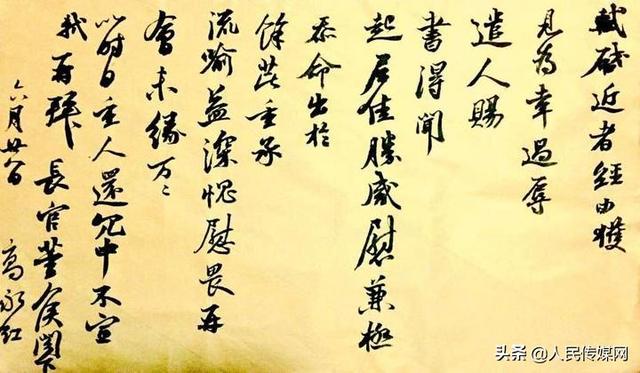 軾啓近者經由獲
見為幸過辱
遣人賜
書得聞
起居佳勝感慰兼極
忝命出於
餘芘重承
流喻益深愧慰畏再
會未緣万〻
以時自重人還冗中不宣
軾再拜 長官董侯閣下
六月廿八日
高永红
头条 @人民传媒网